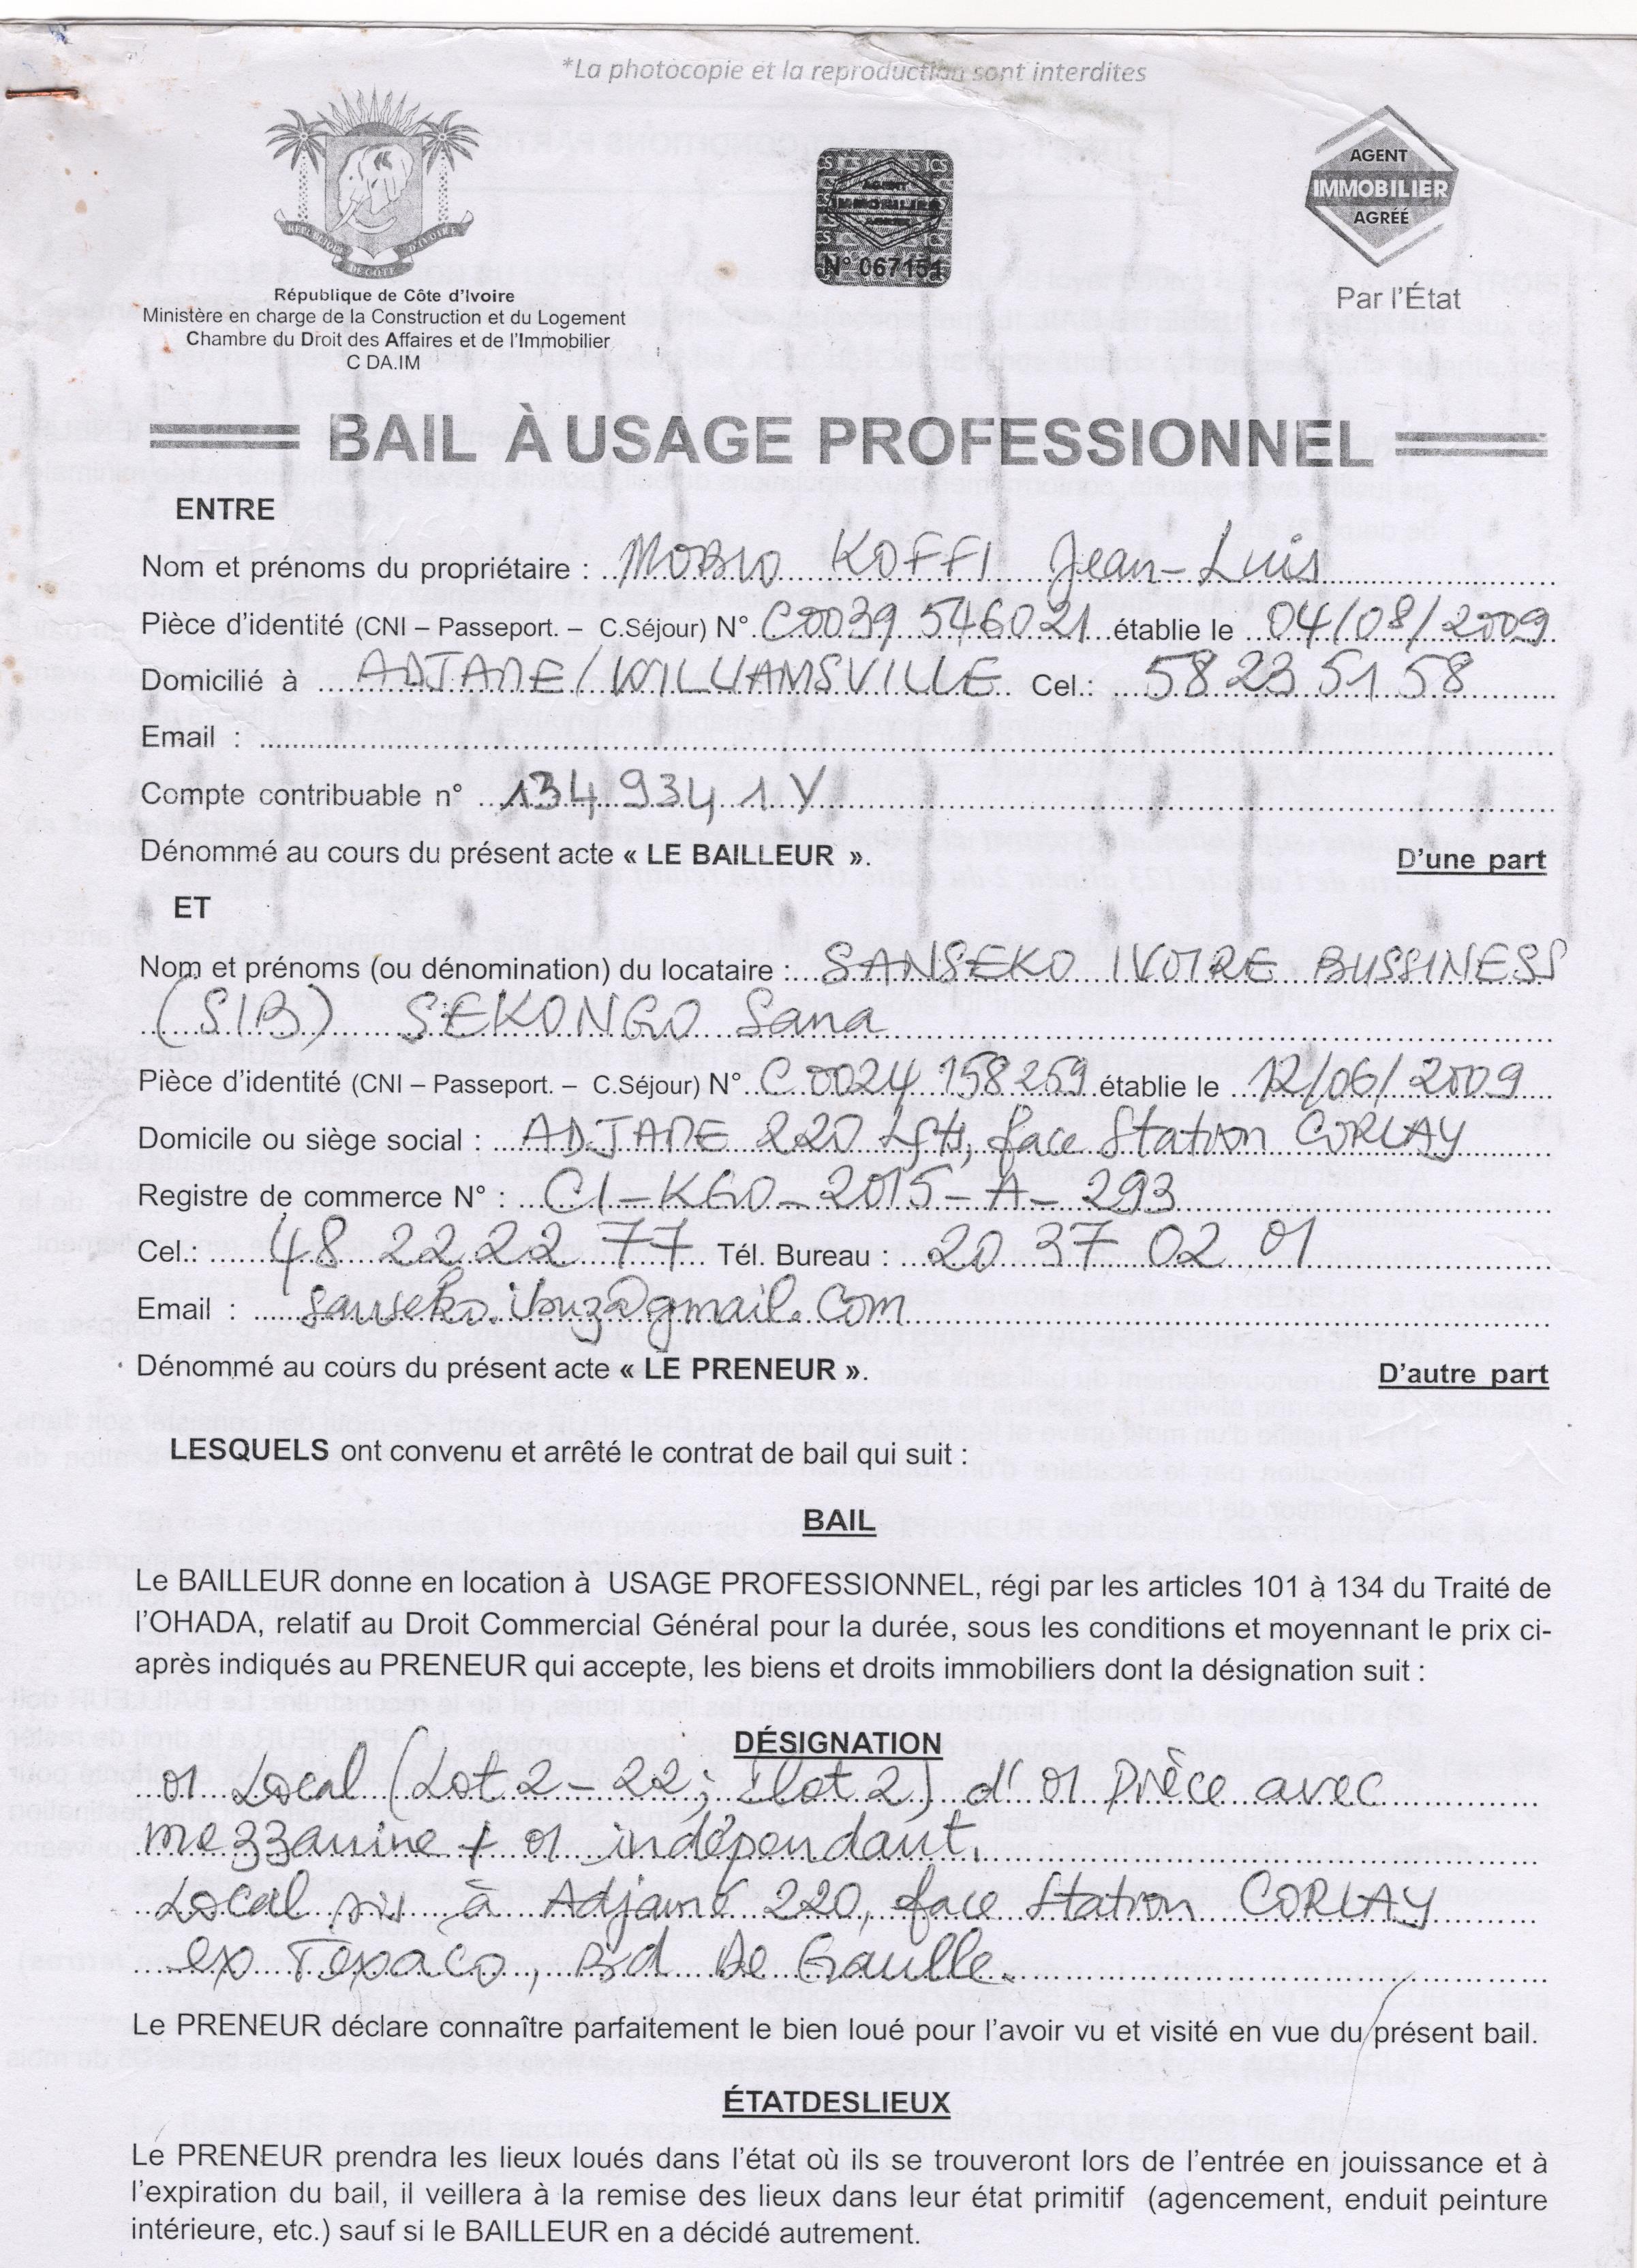 *La photocopie et la reproduction sont interdites
REPUBLIQUE DE CÔTE D'IVOIRE
AGENT IMMOBILIER AGRÉÉ
N° 067151
AGENT
IMMOBILIER
AGRÉÉ
Par l'État
République de Côte d'Ivoire
Ministère en charge de la Construction et du Logement
Chambre du Droit des Affaires et de l'Immobilier
C DA.IM
BAIL À USAGE PROFESSIONNEL
ENTRE
Nom et prénoms du propriétaire : MOBIO KOFFI Jean-Luis
Pièce d'identité (CNI – Passeport. – C.Séjour) N° C0039 546021 établie le 04/08/2009
Domicilié à ADJAME / WILLIAMSVILLE Cel.: 58 23 51 58
Email :
Compte contribuable n° 134 934 1 Y
Dénommé au cours du présent acte « LE BAILLEUR ». D'une part
ET
Nom et prénoms (ou dénomination) du locataire : SANSEKO IVOIRE BUSSINESS
(SIB) SEKONGO Sana
Pièce d'identité (CNI – Passeport. – C.Séjour) N° C 0024 158 259 établie le 12/06/2009
Domicile ou siège social : ADJAME 220 Lgts, face Station CORLAY
Registre de commerce N° : CI-KGO-2015-A-293
Cel.: 48 22 22 77 Tél. Bureau : 20 37 02 01
Email : sanseko.ibuz@gmail.com
Dénommé au cours du présent acte « LE PRENEUR ». D'autre part
LESQUELS ont convenu et arrêté le contrat de bail qui suit :
BAIL
Le BAILLEUR donne en location à USAGE PROFESSIONNEL, régi par les articles 101 à 134 du Traité de
l'OHADA, relatif au Droit Commercial Général pour la durée, sous les conditions et moyennant le prix ci-
après indiqués au PRENEUR qui accepte, les biens et droits immobiliers dont la désignation suit :
DÉSIGNATION
01 Local (Lot 2-22; Ilot 2) d'01 Pièce avec
mezzanine + 01 indépendant.
Local sis à Adjamé 220, face Station CORLAY
ex Texaco, Bd De Gaulle.
Le PRENEUR déclare connaître parfaitement le bien loué pour l'avoir vu et visité en vue du présent bail.
ÉTATDESLIEUX
Le PRENEUR prendra les lieux loués dans l'état où ils se trouveront lors de l'entrée en jouissance et à
l'expiration du bail, il veillera à la remise des lieux dans leur état primitif (agencement, enduit peinture
intérieure, etc.) sauf si le BAILLEUR en a décidé autrement.